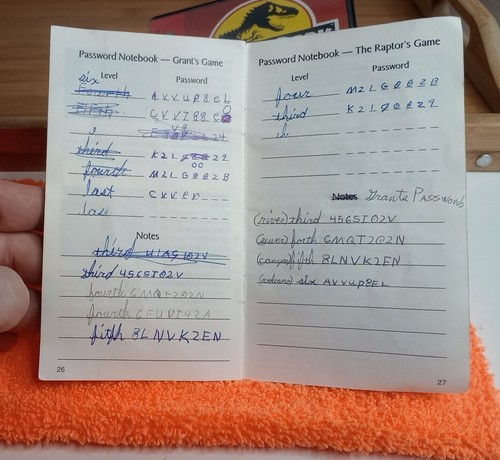 Password Notebook — Grant's Game
Level Password
six
Fourth AVVUP8EL
Fifth CVV788C
third K21 22
fourth M2LG8B2B
last cvver
last
Notes
third 41AS1Q2V
third 456ST02V
fourth GMQT2Q2N
fourth 6FUDT42A
fifth 8LNVK2EN
26
Password Notebook — The Raptor's Game
Level Password
four M2LG8B2B
third K21Q0829
th
Notes Grants Passwords
(river) third 456STO2V
forth GMQT2O2N
(canyon) fifth 8LNVK2EN
six AVVUP8EL
27